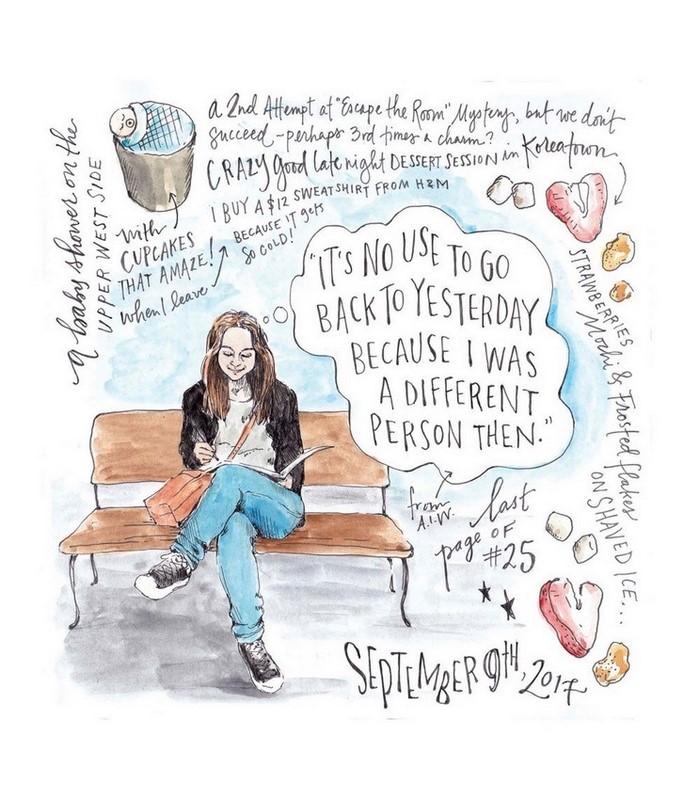 a baby shower on the
UPPER WEST SIDE
with
CUPCAKES
THAT AMAZE!
when I leave
a 2nd Attempt at "Escape the Room" Mystery, but we don't
succeed – perhaps 3rd times a charm?
CRAZY good late night DESSERT SESSION in Koreatown
I BUY A $12 SWEATSHIRT FROM H&M
BECAUSE IT gets
SO COLD!
"IT'S NO USE TO GO
BACK TO YESTERDAY
BECAUSE I WAS
A DIFFERENT
PERSON THEN."
from
A.I.W.
last
page OF
#25
STRAWBERRIES
Mochi & Frosted flakes
ON SHAVED ICE...
SEPTEMBER 9th, 2017